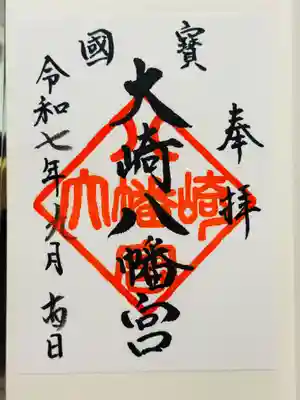 奉拝
國寶
大崎八幡宮
令和七年九月 日
大幡崎